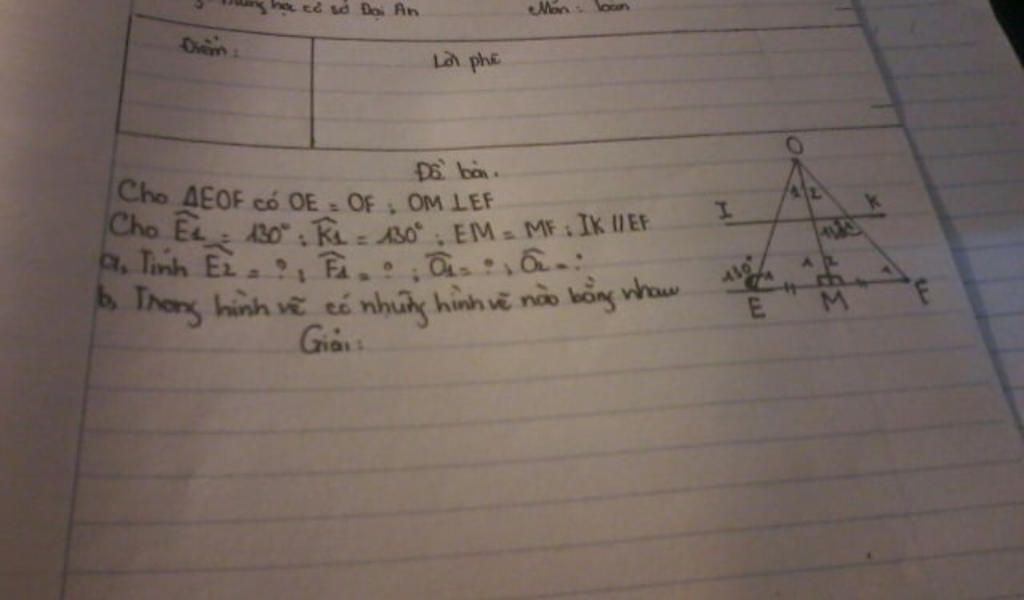 Trung học cơ sở Đại An
Môn: Toán
Điểm:
Lời phê
Đề bài.
Cho ΔEOF có OE = OF; OM ⊥ EF
Cho Ê₂ = 130°; K̂₁ = 130°; EM = MF; IK // EF
a, Tính Ê₂ = ?; F̂₁ = ?; Ô₁ = ?; Ô₂ = ?
b, Trong hình vẽ có những hình vẽ nào bằng nhau
Giải:
O
1 2
I
K
130°
1 2
130°
1
1
E
M
F